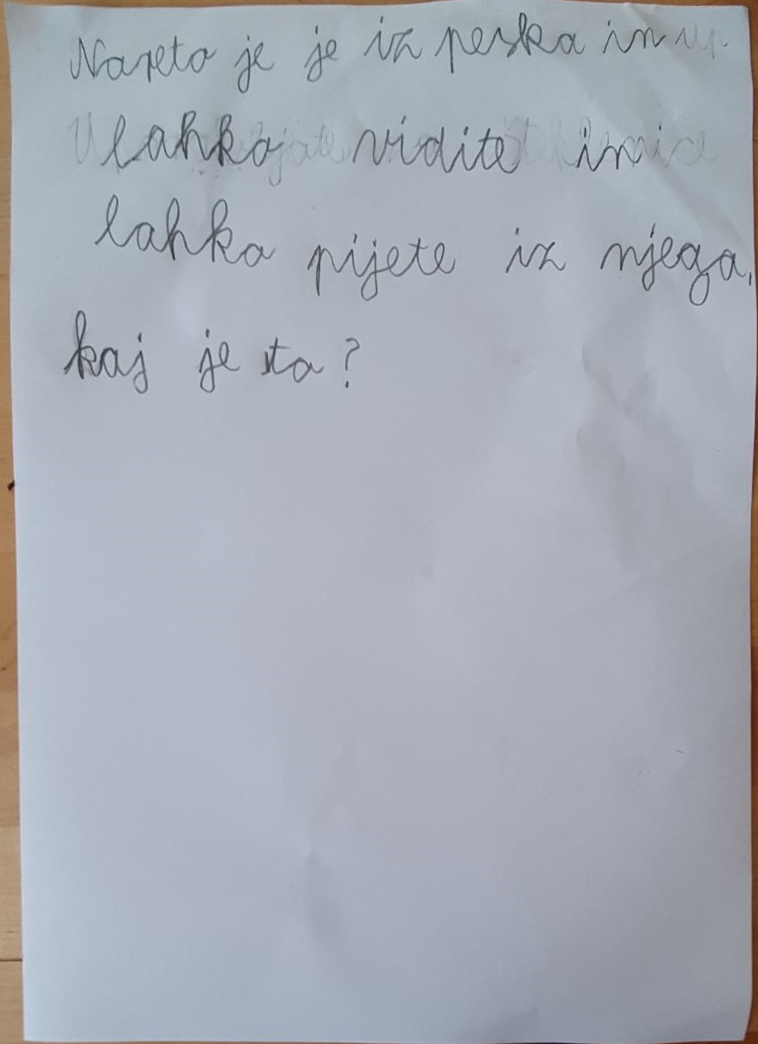 Nareto je je iz peska in
lahko vidite in
lahko pijete iz njega,
kaj je to?